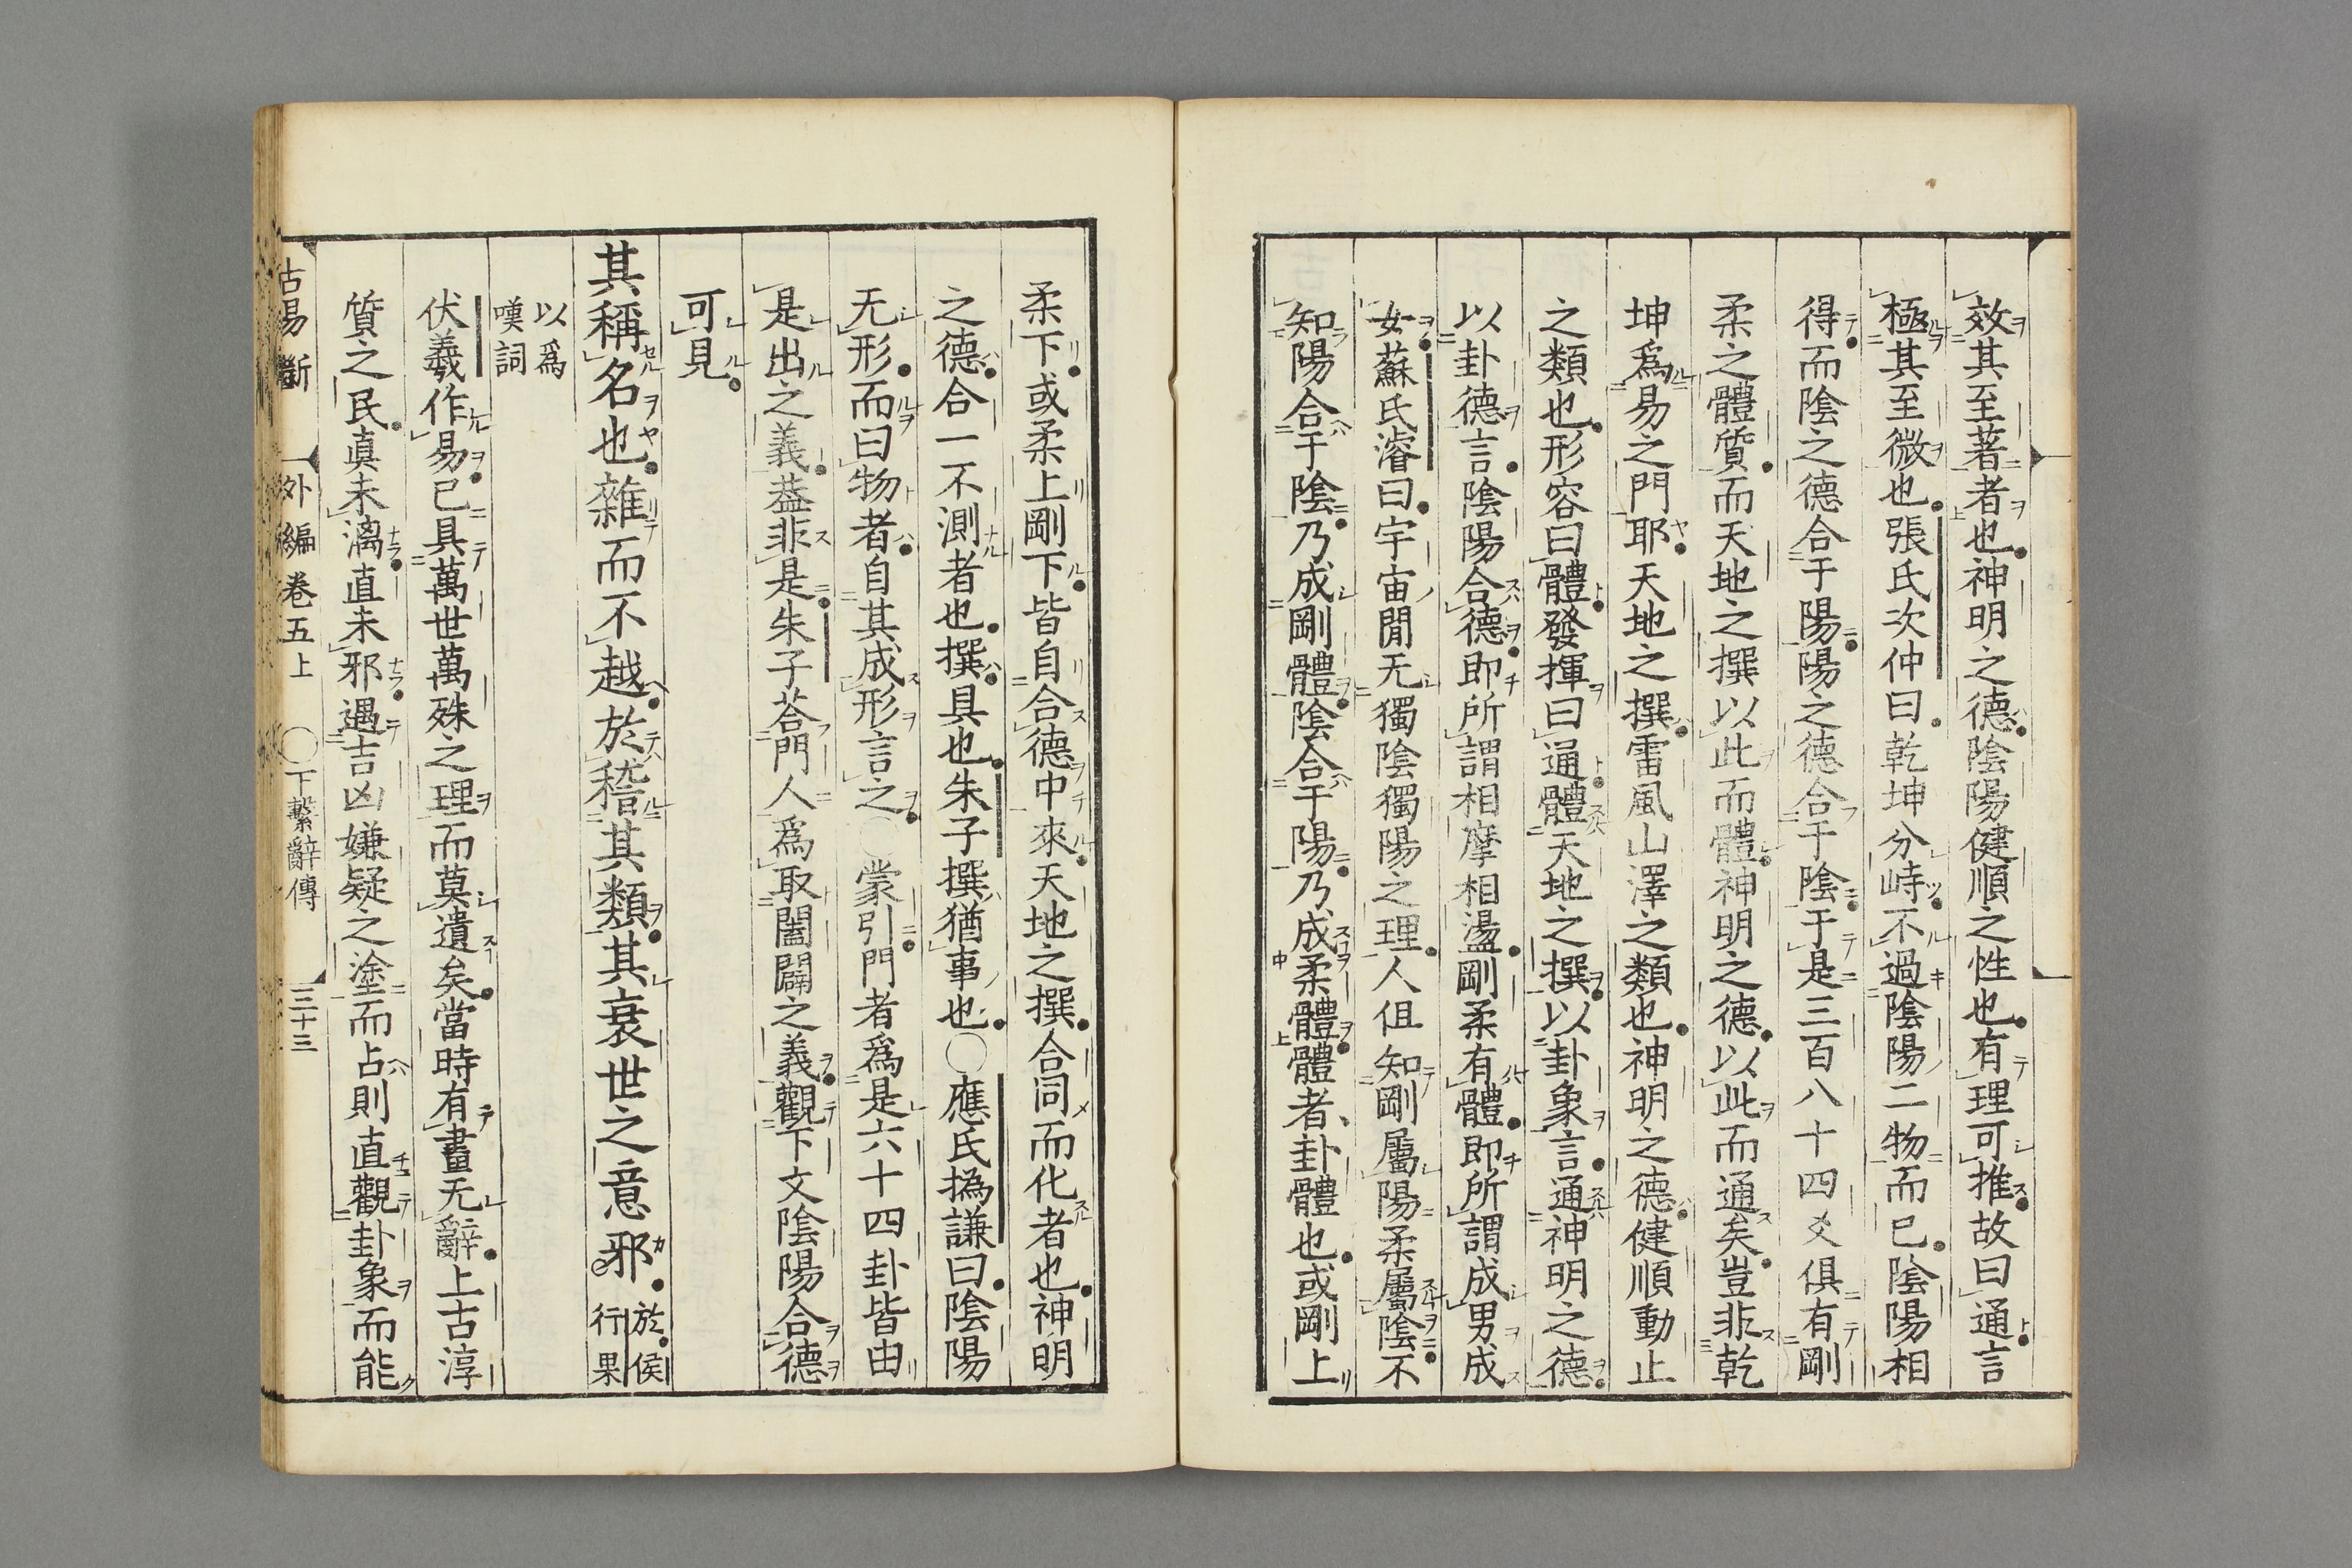 效其至著者也神明之德陰陽健順之性也有理可推故曰通言
極其至微也張氏次仲曰乾坤分峙不過陰陽二物而已陰陽相
得而陰之德合于陽陽之德合于陰于是三百八十四爻俱有剛
柔之體質而天地之撰以此而體神明之德以此而通矣豈非乾
坤爲易之門耶天地之撰雷風山澤之類也神明之德健順動止
之類也形容曰體發揮曰通體天地之撰以卦象言通神明之德
以卦德言陰陽合德即所謂相摩相盪剛柔有體即所謂成男成
女蘇氏濬曰宇宙閒无獨陰獨陽之理人但知剛屬陽柔屬陰不
知陽合于陰乃成剛體陰合于陽乃成柔體體者卦體也或剛上
柔下或柔上剛下皆自合德中來天地之撰合同而化者也神明
之德合一不測者也撰具也朱子撰猶事也〇應氏撝謙曰陰陽
无形而曰物者自其成形言之〇蒙引門者爲是六十四卦皆由
是出之義葢非是朱子荅門人爲取闔闢之義觀下文陰陽合德
可見
其稱名也雜而不越於稽其類其衰世之意邪 於侯
行果
以爲
嘆詞
伏羲作易已具萬世萬殊之理而莫遺矣當時有畫无辭上古淳
質之民真未漓直未邪遇吉凶嫌疑之塗而占則直觀卦象而能
古易斷 外編卷五上 〇下繫辭傳 三十三